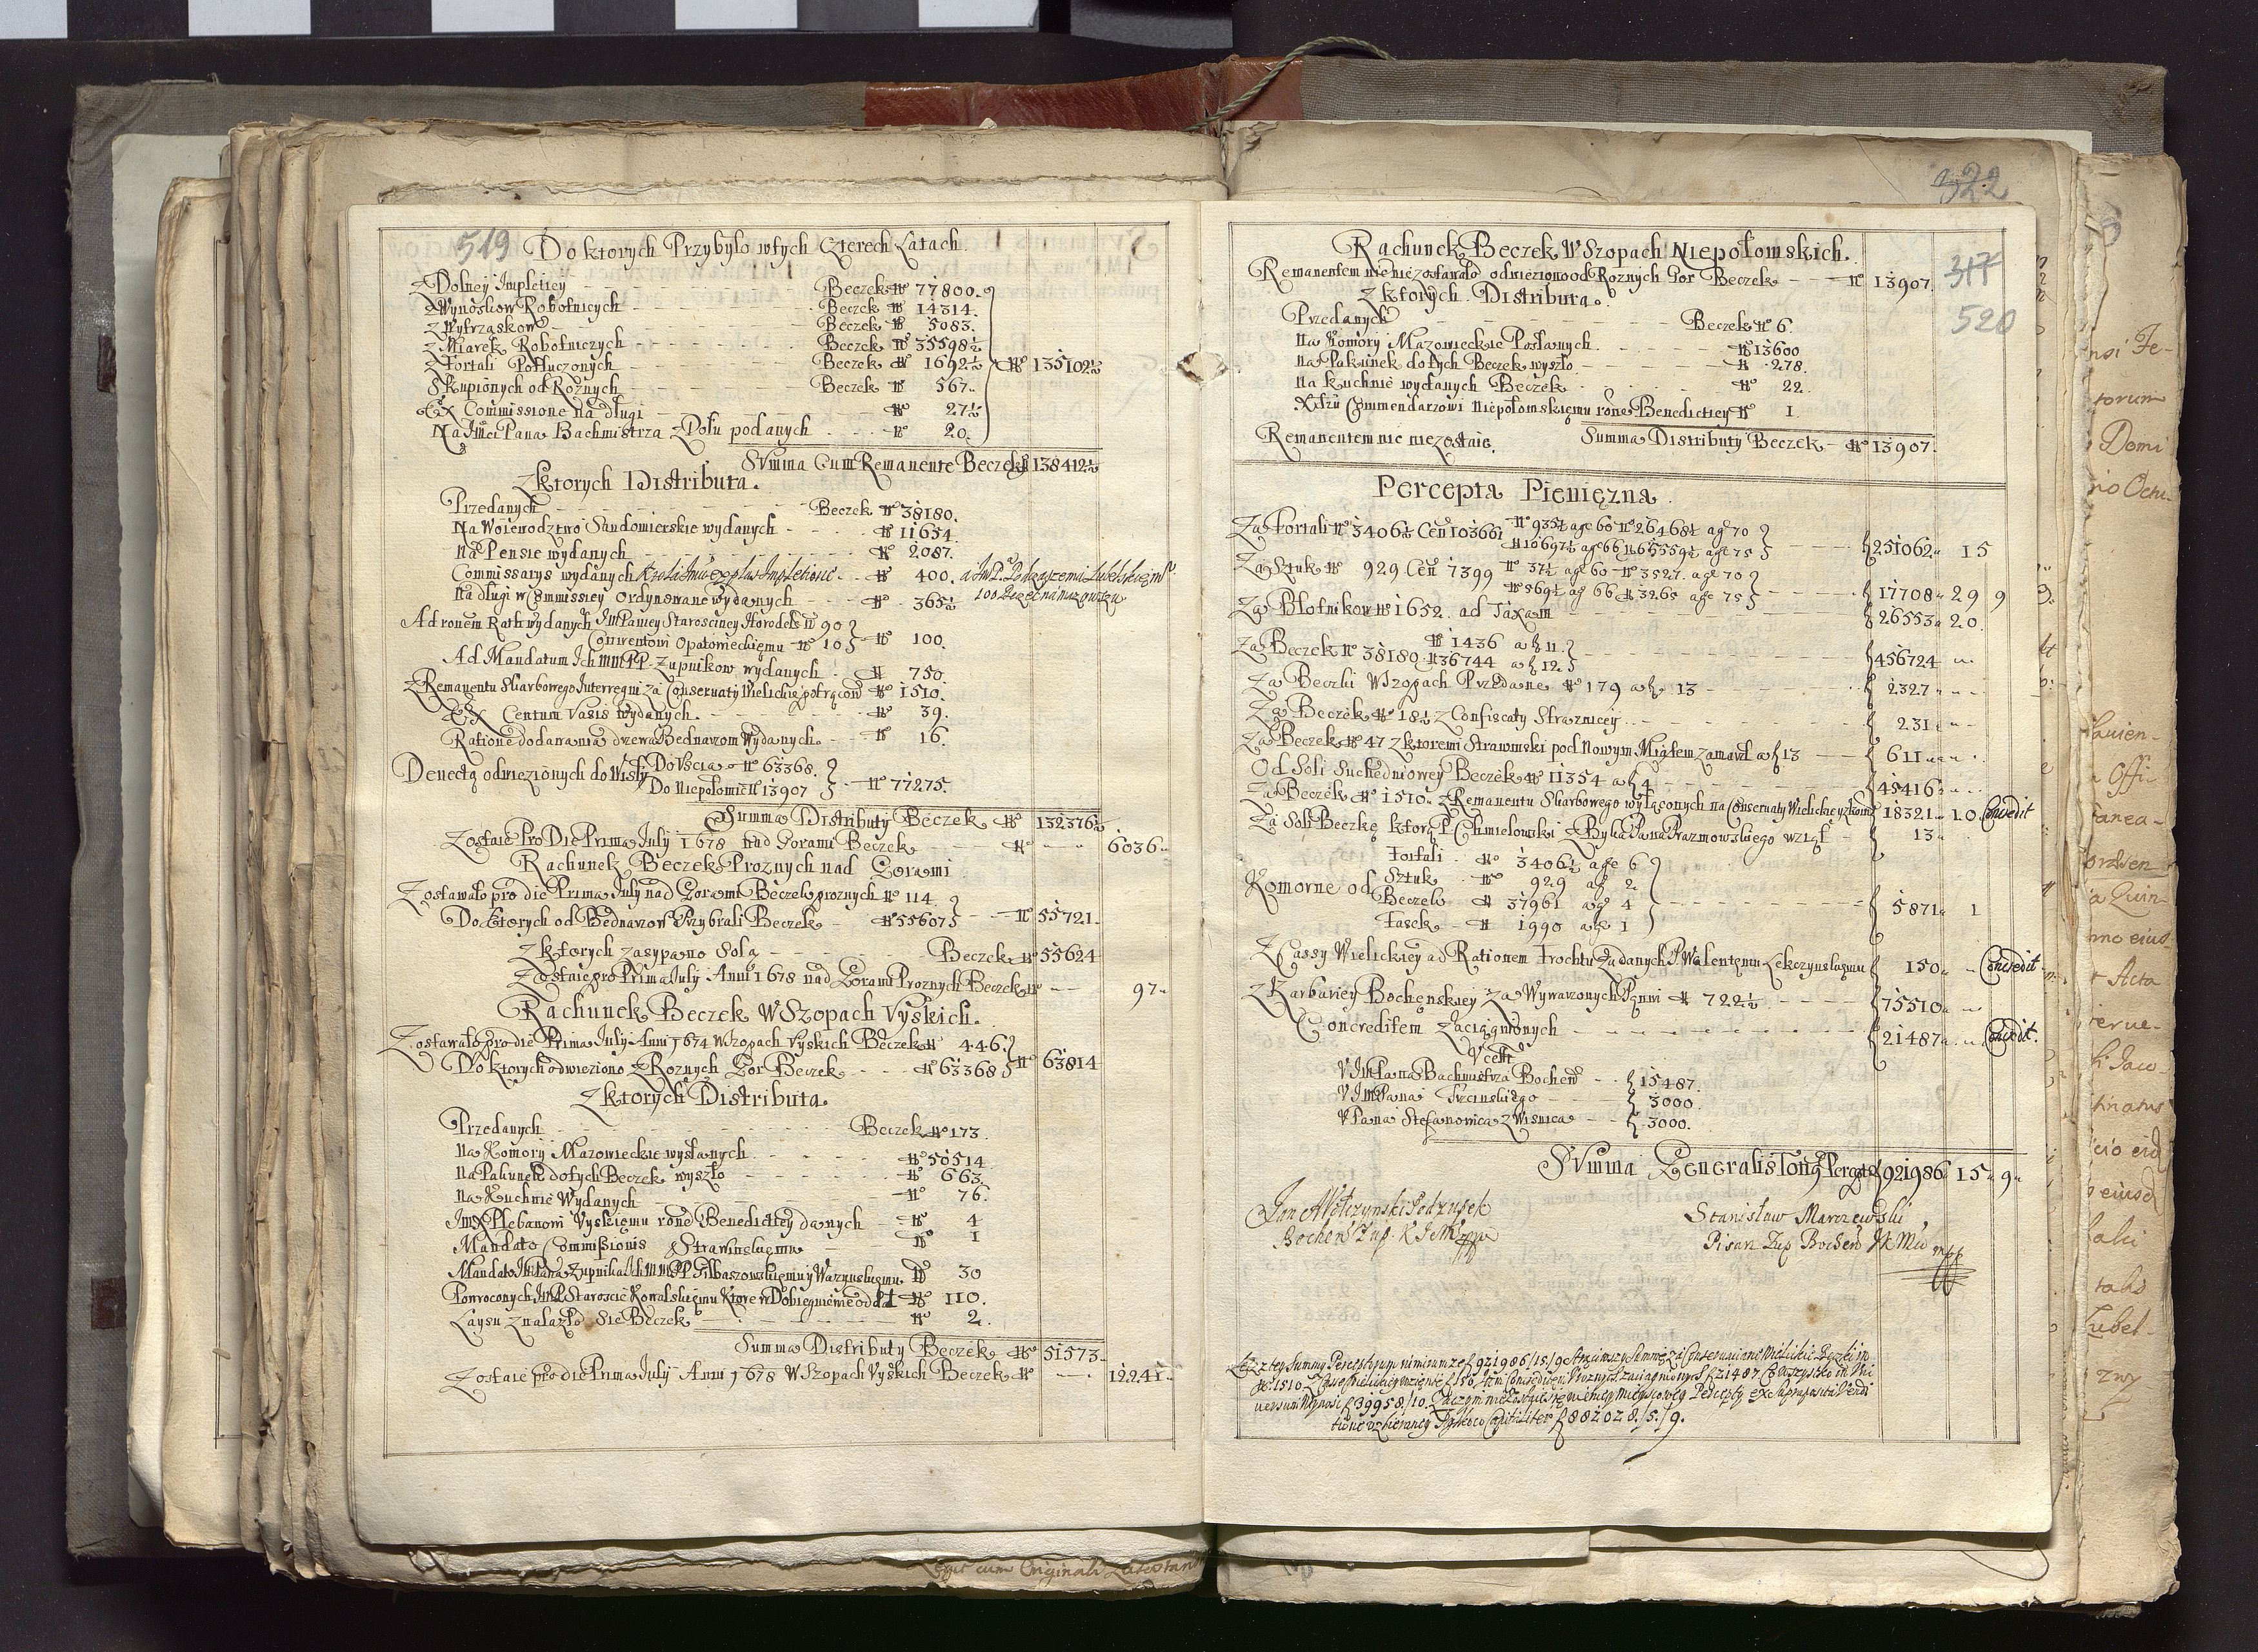 519
Do ktorych Przybyło wtych Czterech Latach.
z Dolney Impletiey Beczek No 77800.
z Wynosкow Robotnicych Beczek No 14314.
z Wytrząskow Beczek No 5083.
z Miarek Robotniczych Beczek No 35598½
z Fortali Potłuczonych Beczek No 1692½ No 135102½
Skupionych od Rożnych Beczek No 567.
Ex Commissione na długi No 27½
Na Jmci Pana Bachmistrza z Dołu podanych No 20.
Summa Cum Remanente Beczek No 138412½
Zktorych Distributa.
Przedanych Beczek No 38180.
Na Woiewodztwo Sandomierskie wydanych No 11654.
Na Pensie wydanych No 2087.
Commissarys wydanych No 400.
Na długi w Commissiey Ordynowane wydanych No 365½ 100 Beczek na
Ad ronem Rath wydanych JmPaniey Starosciney Horodels No 90
Conventowi Opatowieckiemu No 10 No 100.
Ad Mandatum Ich MM PP. Zupnikow wydanych No 750.
z Remanentu Skarbowego Interregni za Conseruaty Wielickie potrącon No 1510.
Ex Centum Vasis wydanych. No 39.
Ratione dodawania drzewa Bednarzom Wydanych No 16.
Denecta odwiezionych do Wisły Do Vscia No 63368.
Do Niepołomic No 13907 No 77275.
Summa Distributy Beczek No 132376½
Zostaie Pro Die Prima July 1678 nad Gorami Beczek No 6036
Rachunek Beczek Proznych nad Gorami
Zostawało pro die Prima July nad Gorami Beczek proznych No 114.
Do ktorych od Bednarzow Przybrali Beczek No 55607 No 55721
Zktorych zasypano Solą Beczek No 55624
Zostaie pro Prima July Anni 1678 nad Gorami Proznych Beczek No 97
Rachunek Beczek W Szopach Vyskich.
Zostawało pro die Prima July Anni 1674 W Szopach Vyskich Beczek No 446.
Do ktorych odwieziono z Roznych Gor Beczek No 63368 No 63814
Zktorych Distributa.
Przedanych Beczek No 173.
Na Komory Mazowieckie wysłanych No 50514
Na Pakunek do tych Beczek wyszło No 663.
Na Kuchnie Wydanych No 76.
JmX Plebanowi Vyskiemu rone Benedictey danych No 4
Mandato Commissionis P Strawinskiemu No 1
Mandato JmPana Zupnika Ich MM PP Gilbaszowskiemu y Wazynskiemu No 30
Powroconych JmP Staroscie Kowalskiemu ktore w Dobiegniewie oddał No 110.
Laysu znalazło sie Beczek No 2.
Summa Distributy Beczek No 51573
Zostaie pro die Prima July Anni 1678 W Szopach Vyskich Beczek No 12241
322
317
520
Rachunek Beczek W Szopach Niepołomskich.
Remanentem nic niezostawało odwieziono od Roznych Gor Beczek No 13907.
Zktorych Distributa.
Przedanych Beczek No 6.
Na Komory Mazowieckie Posłanych No 13600
Na Pakunek do tych Beczek wyszło No 278.
Na kuchnie wydanych Beczek No 22.
Xdzu Commendarzowi Niepołomskiemu rone Benedictiey No 1.
Remanentem nic niezostaie. Summa Distributy Beczek No 13907.
Percepta Pieniezna.
Za Fortali No 3406½ Cen 103661 No 9354 age 60 No 26468½ age 70
No 10697½ age 66 No 65559½ age 75 251062 15
Za Sztuk No 929 Cen 7399 No 37½ age 60 No 3527. age 70
No 569½ ag 66 No 3265 age 75 17708 29 9
Za Błotnikow No 1652. ad Taxam 26553 20.
Za Beczek No 38180 No 1436 a f 11.
No 36744 a f 12. 456724
Za Beczki W Szopach Przedane No 179 a f 13 2327
Za Beczek No 18½ z Confiscaty Straznicey 231
Za Beczek No 47 z ktoremi Strawinski pod Nowym Miastem zamarzł a f 13 611
Od Soli Suchedniowey Beczek No 11354 a f 4 45416
Za Beczek No 1510. z Remanentu Skarbowego wyłąconych na Conseruaty Wielickie 18321 10 Concredit
Za Soli Beczkę ktorą P Chmielowski z Bytia Pana Prazmowskiego wziął 13
Komorne od Fortali No 3406½ age 6
Sztuk No 929 ag 2
Beczek No 37961 age 4 5871 1
Fasek No 1990 age 1
Z Cassy Wielickiey ad Rationem Trochtu Zadanych P Walentemu Lekczynskiemu 150 Concredit
Z Karbariey Bochenskiey Za Wywarzonych Panwi No 722½ 75510
Concreditem Zaciągnionych 21487 Concredit.
Vcett
V JmPana Bachmistrza Bochen 15487.
V JmPana Trzinskiego 3000.
V Pana Stefanowica z Wisnica 3000.
Summa Generalis Tong Percepte 921986 15 9
Stanisław Marczewski
Pisarz Zup Bochen
Bochen Zup. K J M
f 39958/10.
Capituliter f 882028./5./9.